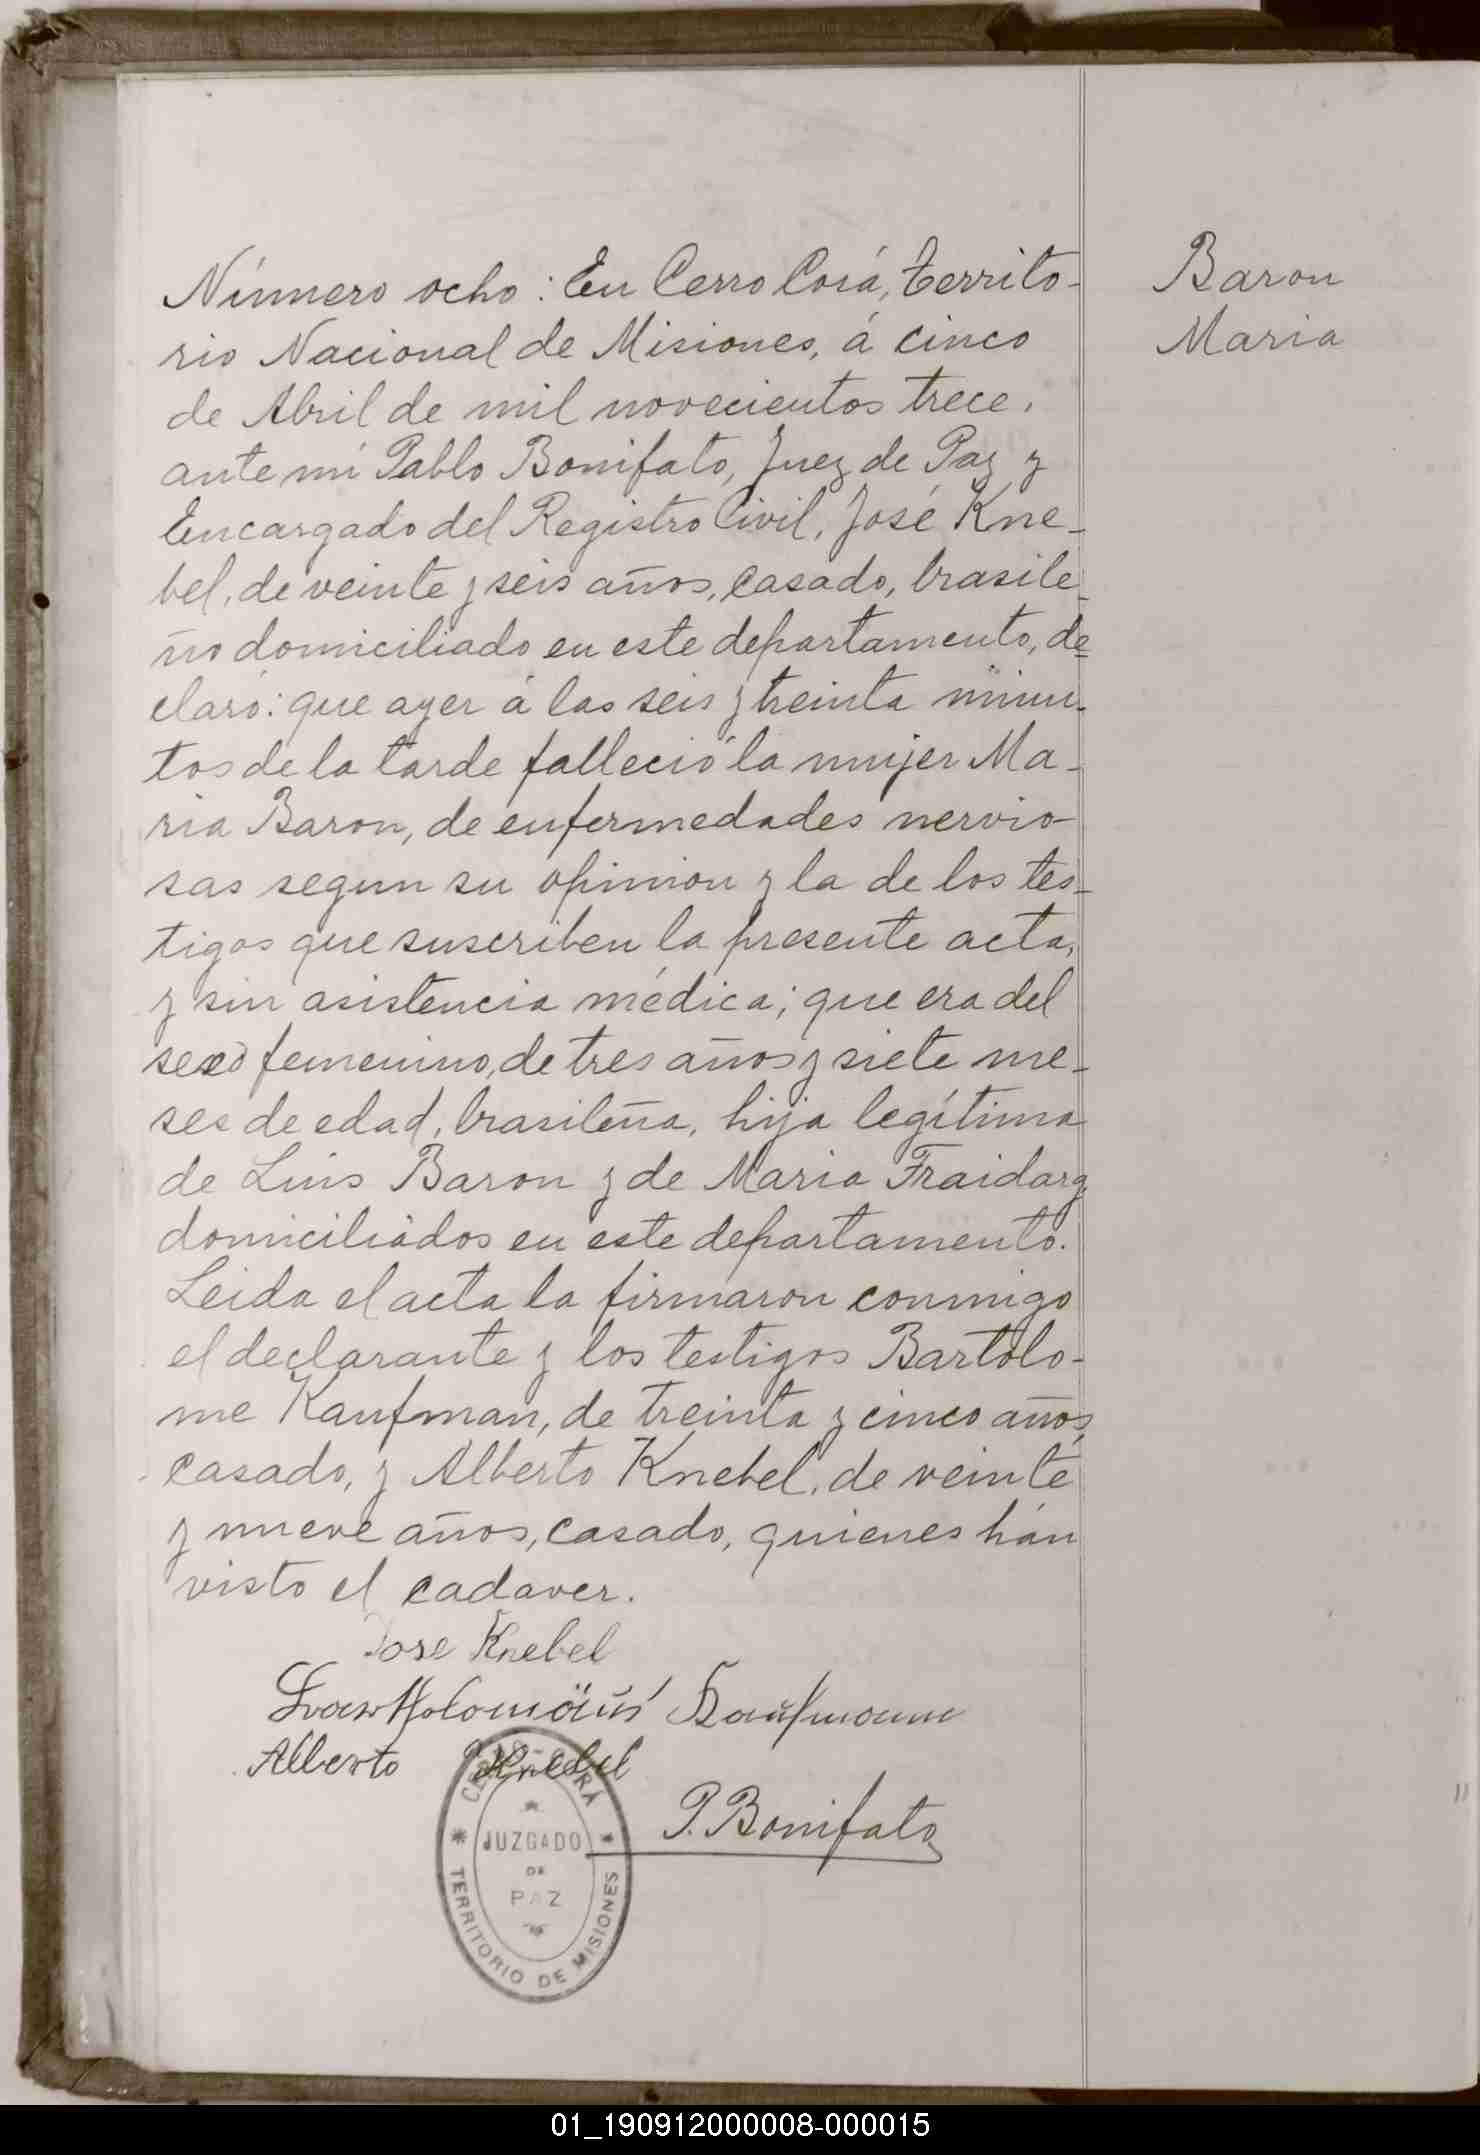 Número ocho: En Cerro Corá, Territo-
rio Nacional de Misiones, á cinco
de Abril de mil novecientos trece,
ante mi Pablo Bonifato, Juez de Paz y
Encargado del Registro Civil, José Kne-
bel, de veinte y seis años, casado, brasile-
ño domiciliado en este departamento, de=
claró: que ayer á las seis y treinta minu-
tos de la tarde falleció la mujer Ma-
ria Baron, de enfermedades nervio-
sas segun su opinion y la de los tes-
tigos que suscriben la presente acta,
y sin asistencia médica; que era del
sexo femenino, de tres años y siete me-
ses de edad, brasileña, hija legítima
de Luis Baron y de Maria Fraidarg,
domiciliados en este departamento.
Leida el acta la firmaron conmigo
el declarante y los testigos Bartolo-
me Kaufman, de treinta y cinco años,
casado, y Alberto Knebel, de veinte
y nueve años, casado, quienes hán
visto el cadaver.
Jose Knebel
Bartholomäus Kaufmann
Alberto Knebel
P. Bonifato
CERRO-CORÁ
JUZGADO
DE
PAZ
TERRITORIO DE MISIONES
Baron
Maria
01_190912000008-000015